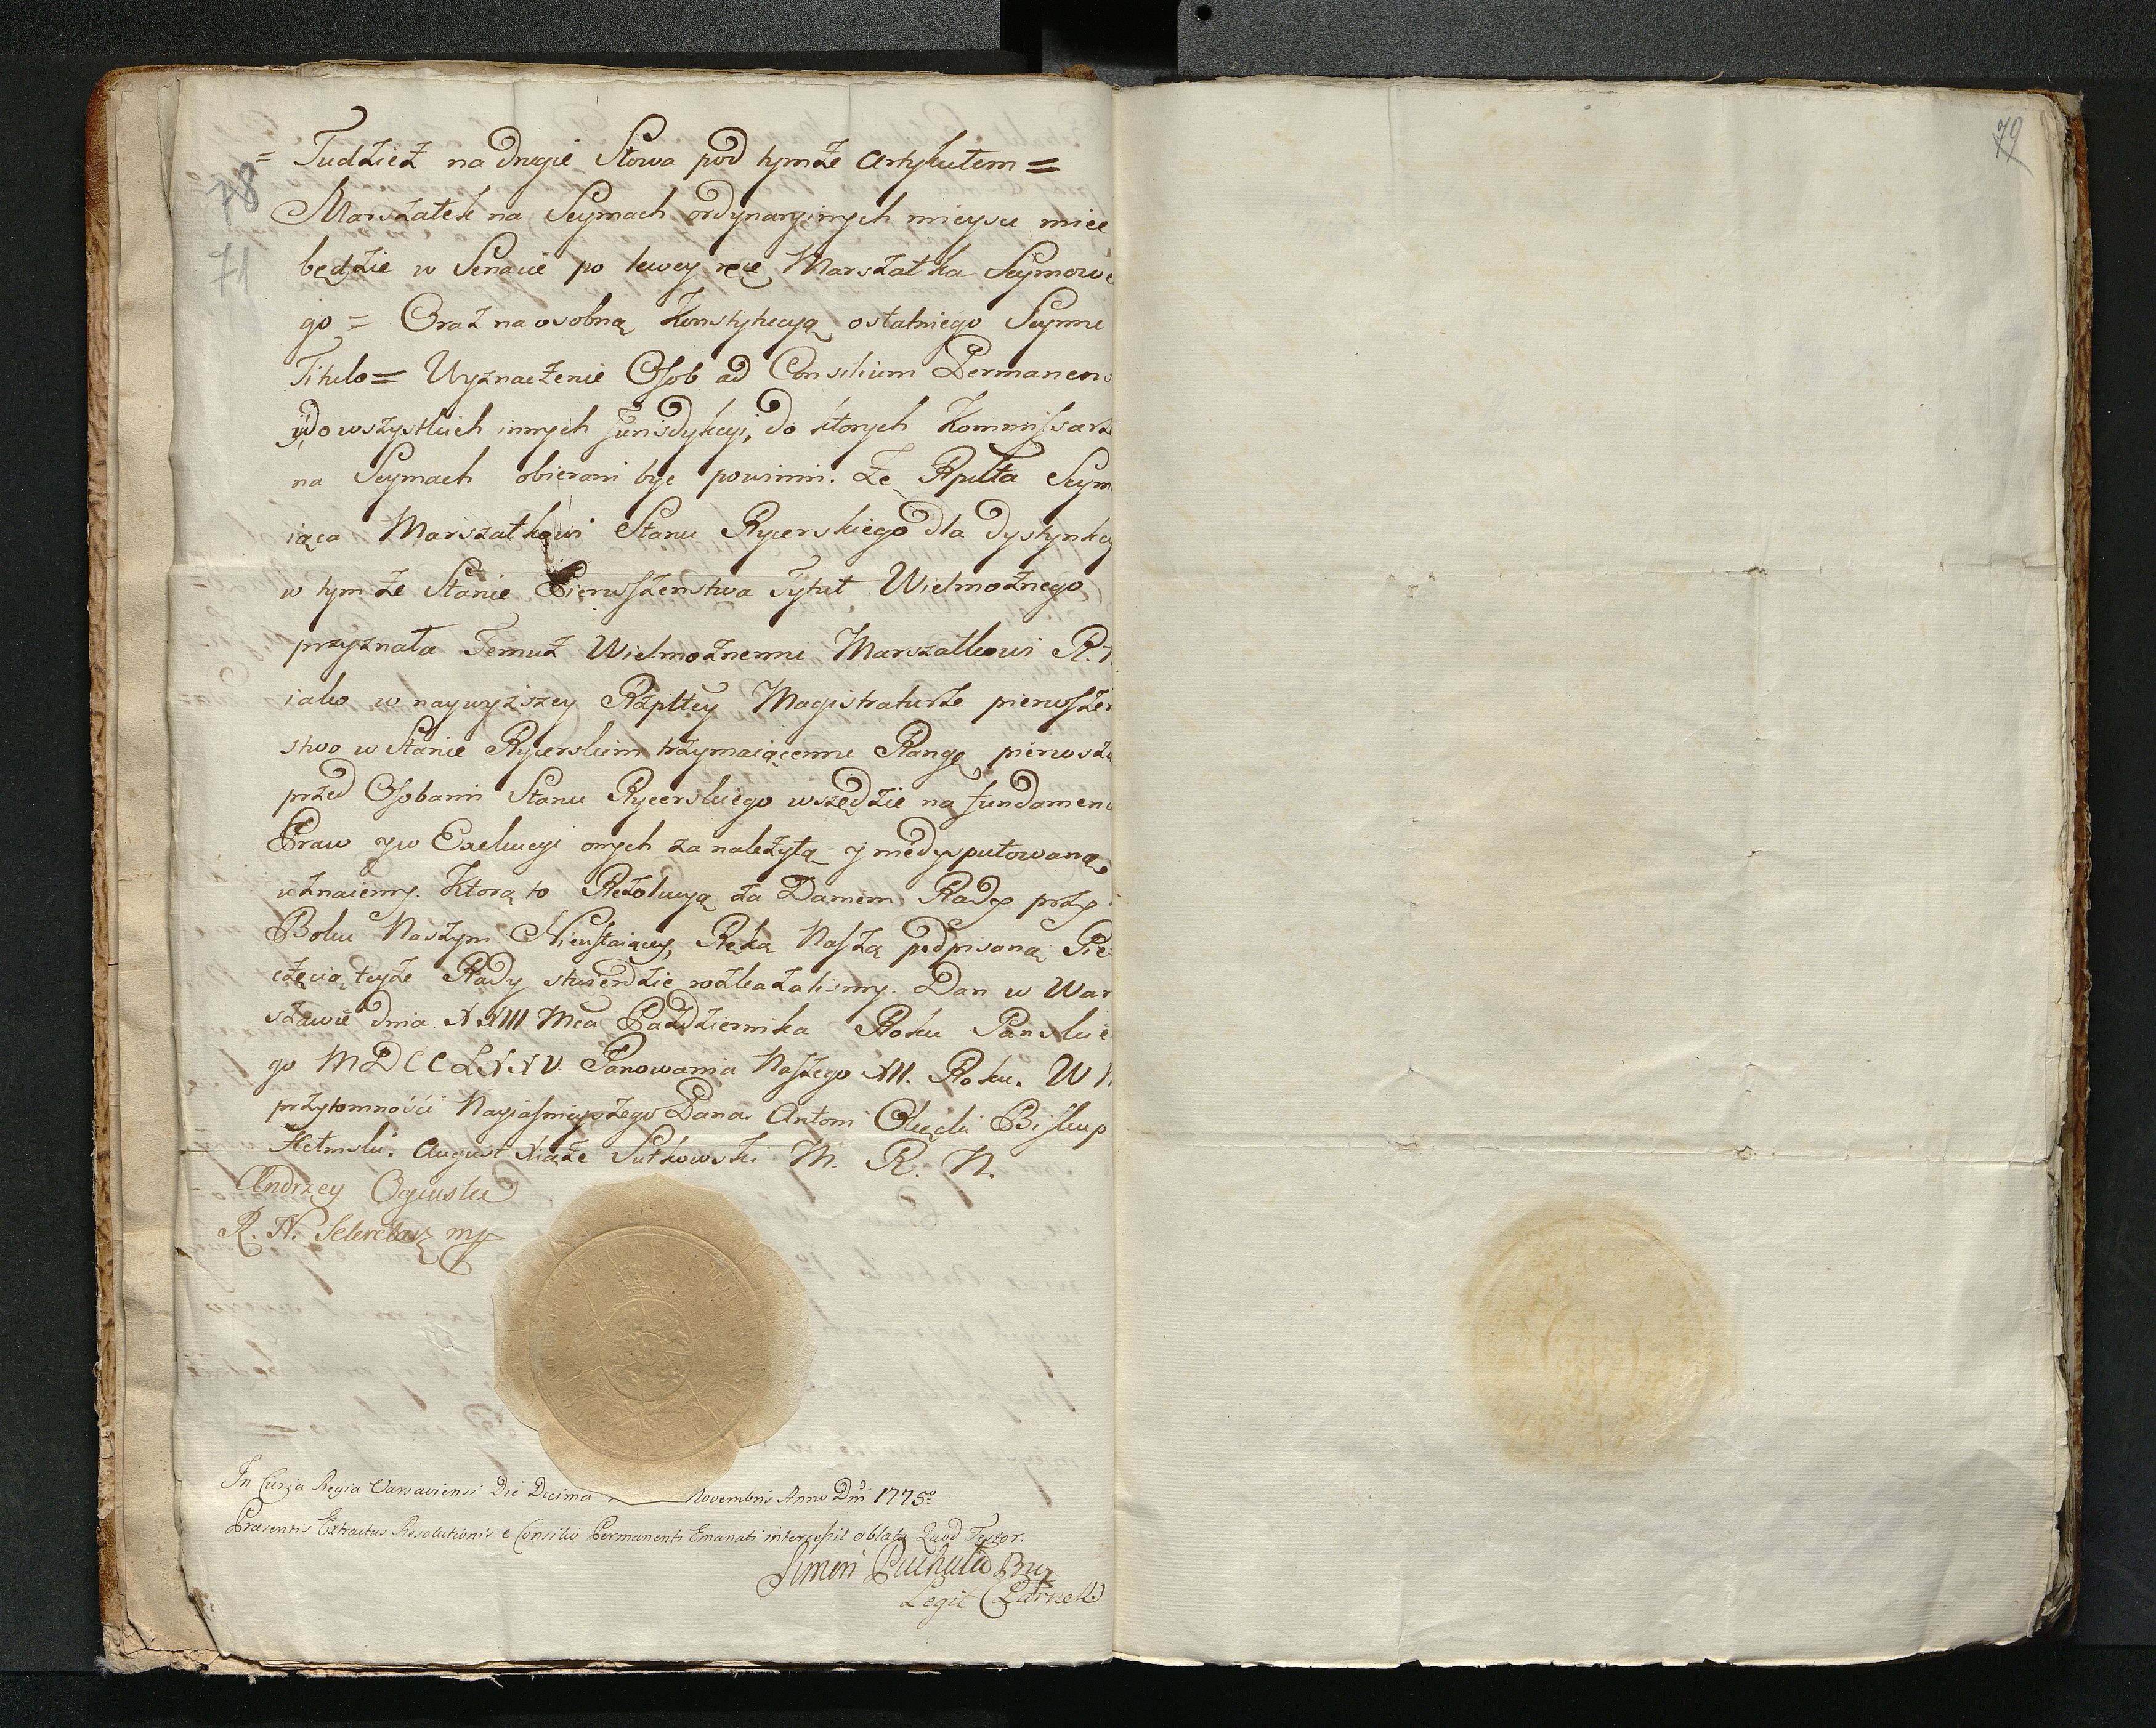 79
= Tudzież na drugie Słowa pod tymże Artykułem =
78
Marszałek na Seymach ordynaryinych mieysce miec
71
będzie w Senacie po lewey ręce Marszałka Seymowe
go = Oraz na osobną Konstytucyą ostatniego Seymu
Titulo = Wyznaczenie Osob ad Consilium Permanens
y do wszystkich innych Jurisdykcyi, do ktorych Kommissarze
na Seymach obierani byc powinni. Że Rplta Seym
iąca Marszałkowi Stanu Rycerskiego dla dystynkcy
w tymże Stanie Pierwszenstwa Tytuł Wielmożnego
przyznała Temuż Wielmożnemu Marszałkowi R. N
iako w naywyzszey Rzpltey Magistraturze pierwszen
stwo w Stanie Rycerskim trzymaiącemu Rangę pierwszą
przed Osobami Stanu Rycerskiego wszędzie na fundamenc
Praw y w Exekucyi onych za należytą y niedysputowaną
uznaiemy. Ktorą to Rezolucyą za Daniem Rady przy
Boku Naszym Nieustaiącey, Ręką Naszą podpisaną Pie
częcią teyże Rady stwierdzic rozkazalismy. Dan w War
szawie dnia XXIII Mca Pazdziernika Roku Panskie
go MDCCLXXV. Panowania Naszego XII. Roku. W N
przytomności Nayiasnieyszego Pana Antoni Okęcki Biskup
Hełmski. August Xiąże Sułkowski M. R. N.
Andrzey Ogiński
R. N. Sekretarz mp
In Curia Regia Varsaviensi Die Decima Novembris Anno Dni 1775o
Praesentis Extractus Resolutionis e Consilio Permanenti Emanati intercessit oblata Quod Testor.
Simon Puchała Bur
Legit Czarnek